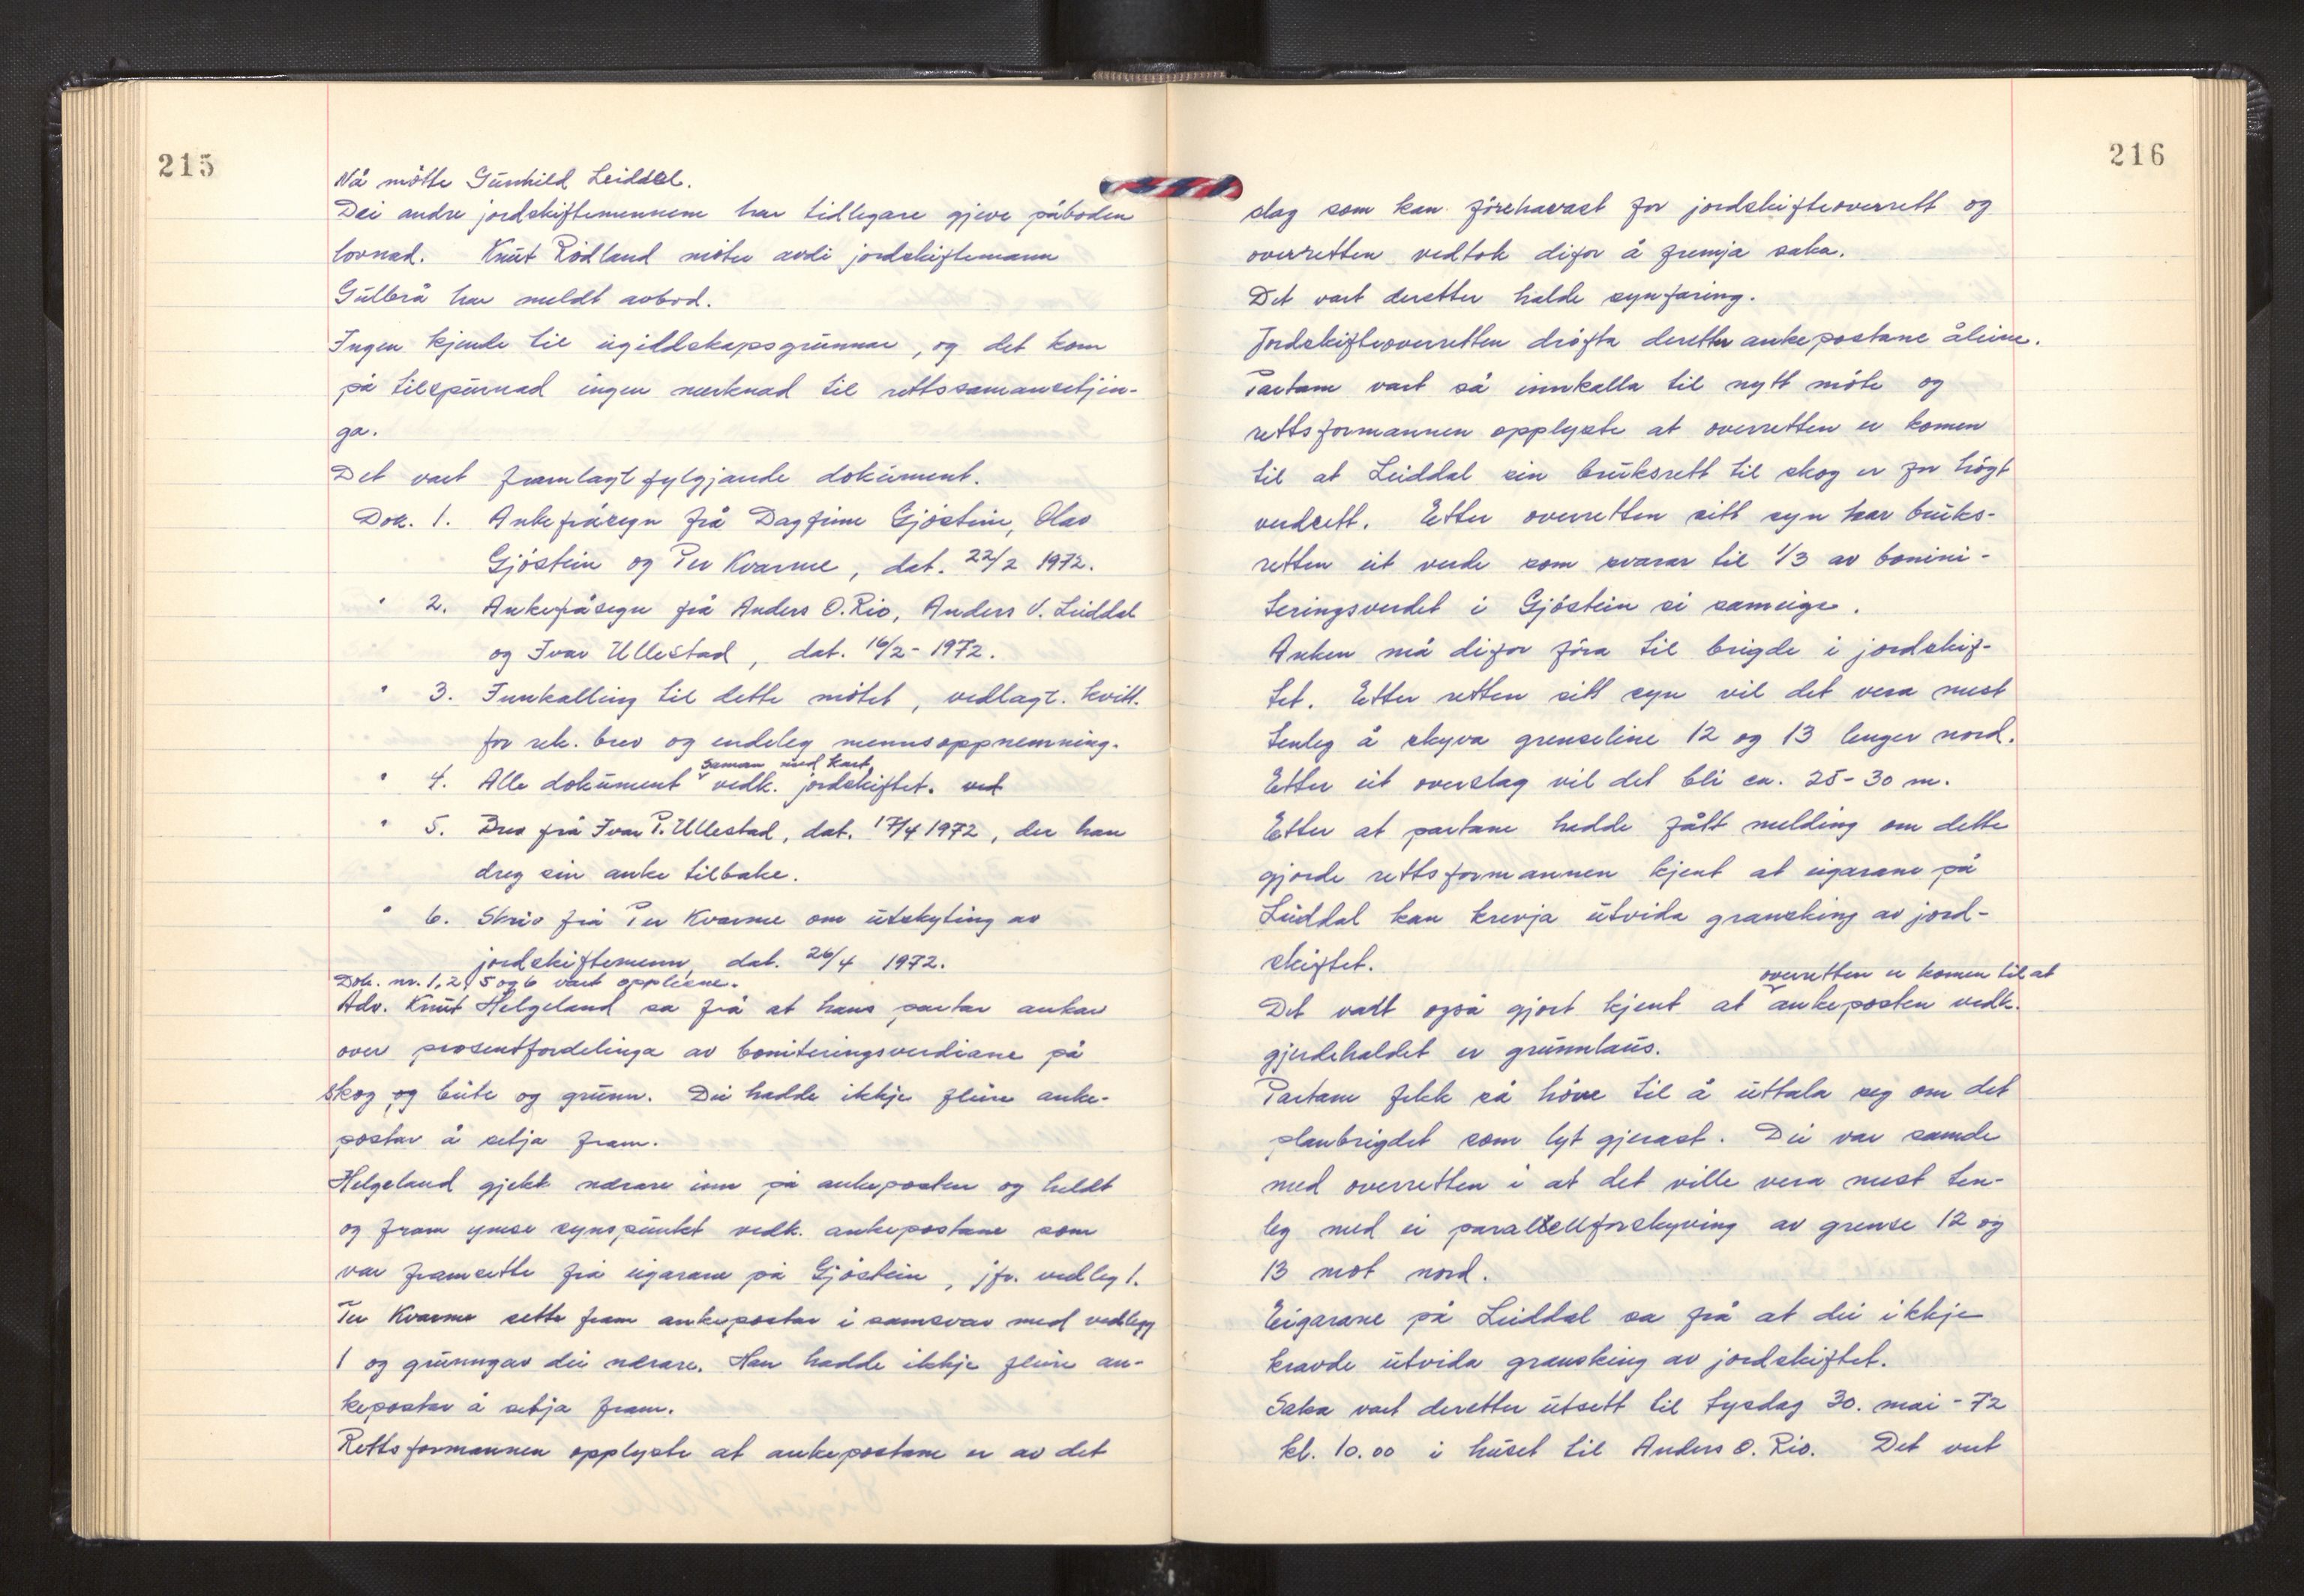 215
Nå møtte Gunhild Leiddal.
Dei andre jordskiftemennene har tidlegare gjeve påboden
lovnad. Knut Rödland möter avdi jordskiftemann
Gulbrå har meldt avbod.
Ingen kjende til ugildskapsgrunnar, og det kom
på tilspurnad ingen merknad til rettssamansetjin-
ga.
Det vart framlagt fylgjande dokument.
Dok. 1. Ankefråsegn frå Dagfinn Gjöstein, Olav
Gjöstein og Per Kvarme, dat. 22/2 1972.
" 2. Ankefråsegn frå Anders O. Rio, Anders V. Leiddal
og Ivar Ullestad, dat. 16/2 - 1972.
" 3. Innkalling til dette mötet, vedlagt. kvitt.
for rek. brev og endeleg mennsoppnemning.
saman med kart
" 4. Alle dokument vedk. jordskiftet. ved
" 5. Brev frå Ivar P. Ullestad, dat. 17/4 1972, der han
dreg sin anke tilbake.
" 6. Skriv frå Per Kvarme om utskyting av
jordskiftemenn, dat. 26/4 1972.
Dok. nr. 1, 2, 5 og 6 vart opplesne.
Adv. Knut Helgeland sa frå at hans partar ankar
over prosentfordelinga av boniteringsverdiane på
skog, og beite og grunn. Dei hadde ikkje fleire anke-
postar å setja fram.
Helgeland gjekk nærare inn på ankeposten og heldt
og fram ymse synspunkt vedk. ankepostane som
var framsette frå eigarane på Gjöstein, jfr. vedlegg 1.
Per Kvarme sette fram ankepostar i samsvar med vedlegg
1 og grunngav dei nærare. Han hadde ikkje fleire an-
kepostar å setja fram.
Rettsformannen opplyste at ankepostane er av det
216
slag som kan förehavast for jordskifteoverrett og
overretten vedtok difor å fremja saka.
Det vart deretter halde synfaring.
Jordskifteoverretten dröfta deretter ankepostane åleine.
Partane vart så innkalla til nytt möte og
rettsformannen opplyste at overretten er komen
til at Leiddal sin bruksrett til skog er for högt
verdsett. Etter overretten sitt syn har bruks-
retten eit verde som svarar til 1/3 av bonini-
teringsverdet i Gjöstein si sameige.
Anken må difor föra til brigde i jordskif-
tet. Etter retten sitt syn vil det vera mest
tenleg å skyva grenseline 12 og 13 lenger nord.
Etter eit overslag vil det bli ca. 25-30 m.
Etter at partane hadde fått melding om dette
gjorde rettsformannen kjent at eigarane på
Leiddal kan krevja utvida gransking av jord-
skiftet.
overretten er komen til at
Det vart også gjort kjent at ankeposten vedk.
gjerdehaldet er grunnlaus.
Partane fekk så höve til å uttala seg om det
planbrigdet som lyt gjerast. Dei var samde
med overretten i at det ville vera mest ten-
leg med ei parallellforskyving av grense 12 og
13 mot nord.
Eigarane på Leiddal sa frå at dei ikkje
kravde utvida gransking av jordskiftet.
Saka vart deretter utsett til tysdag 30. mai - 72
kl. 10.00 i huset til Anders O. Rio. Det vart